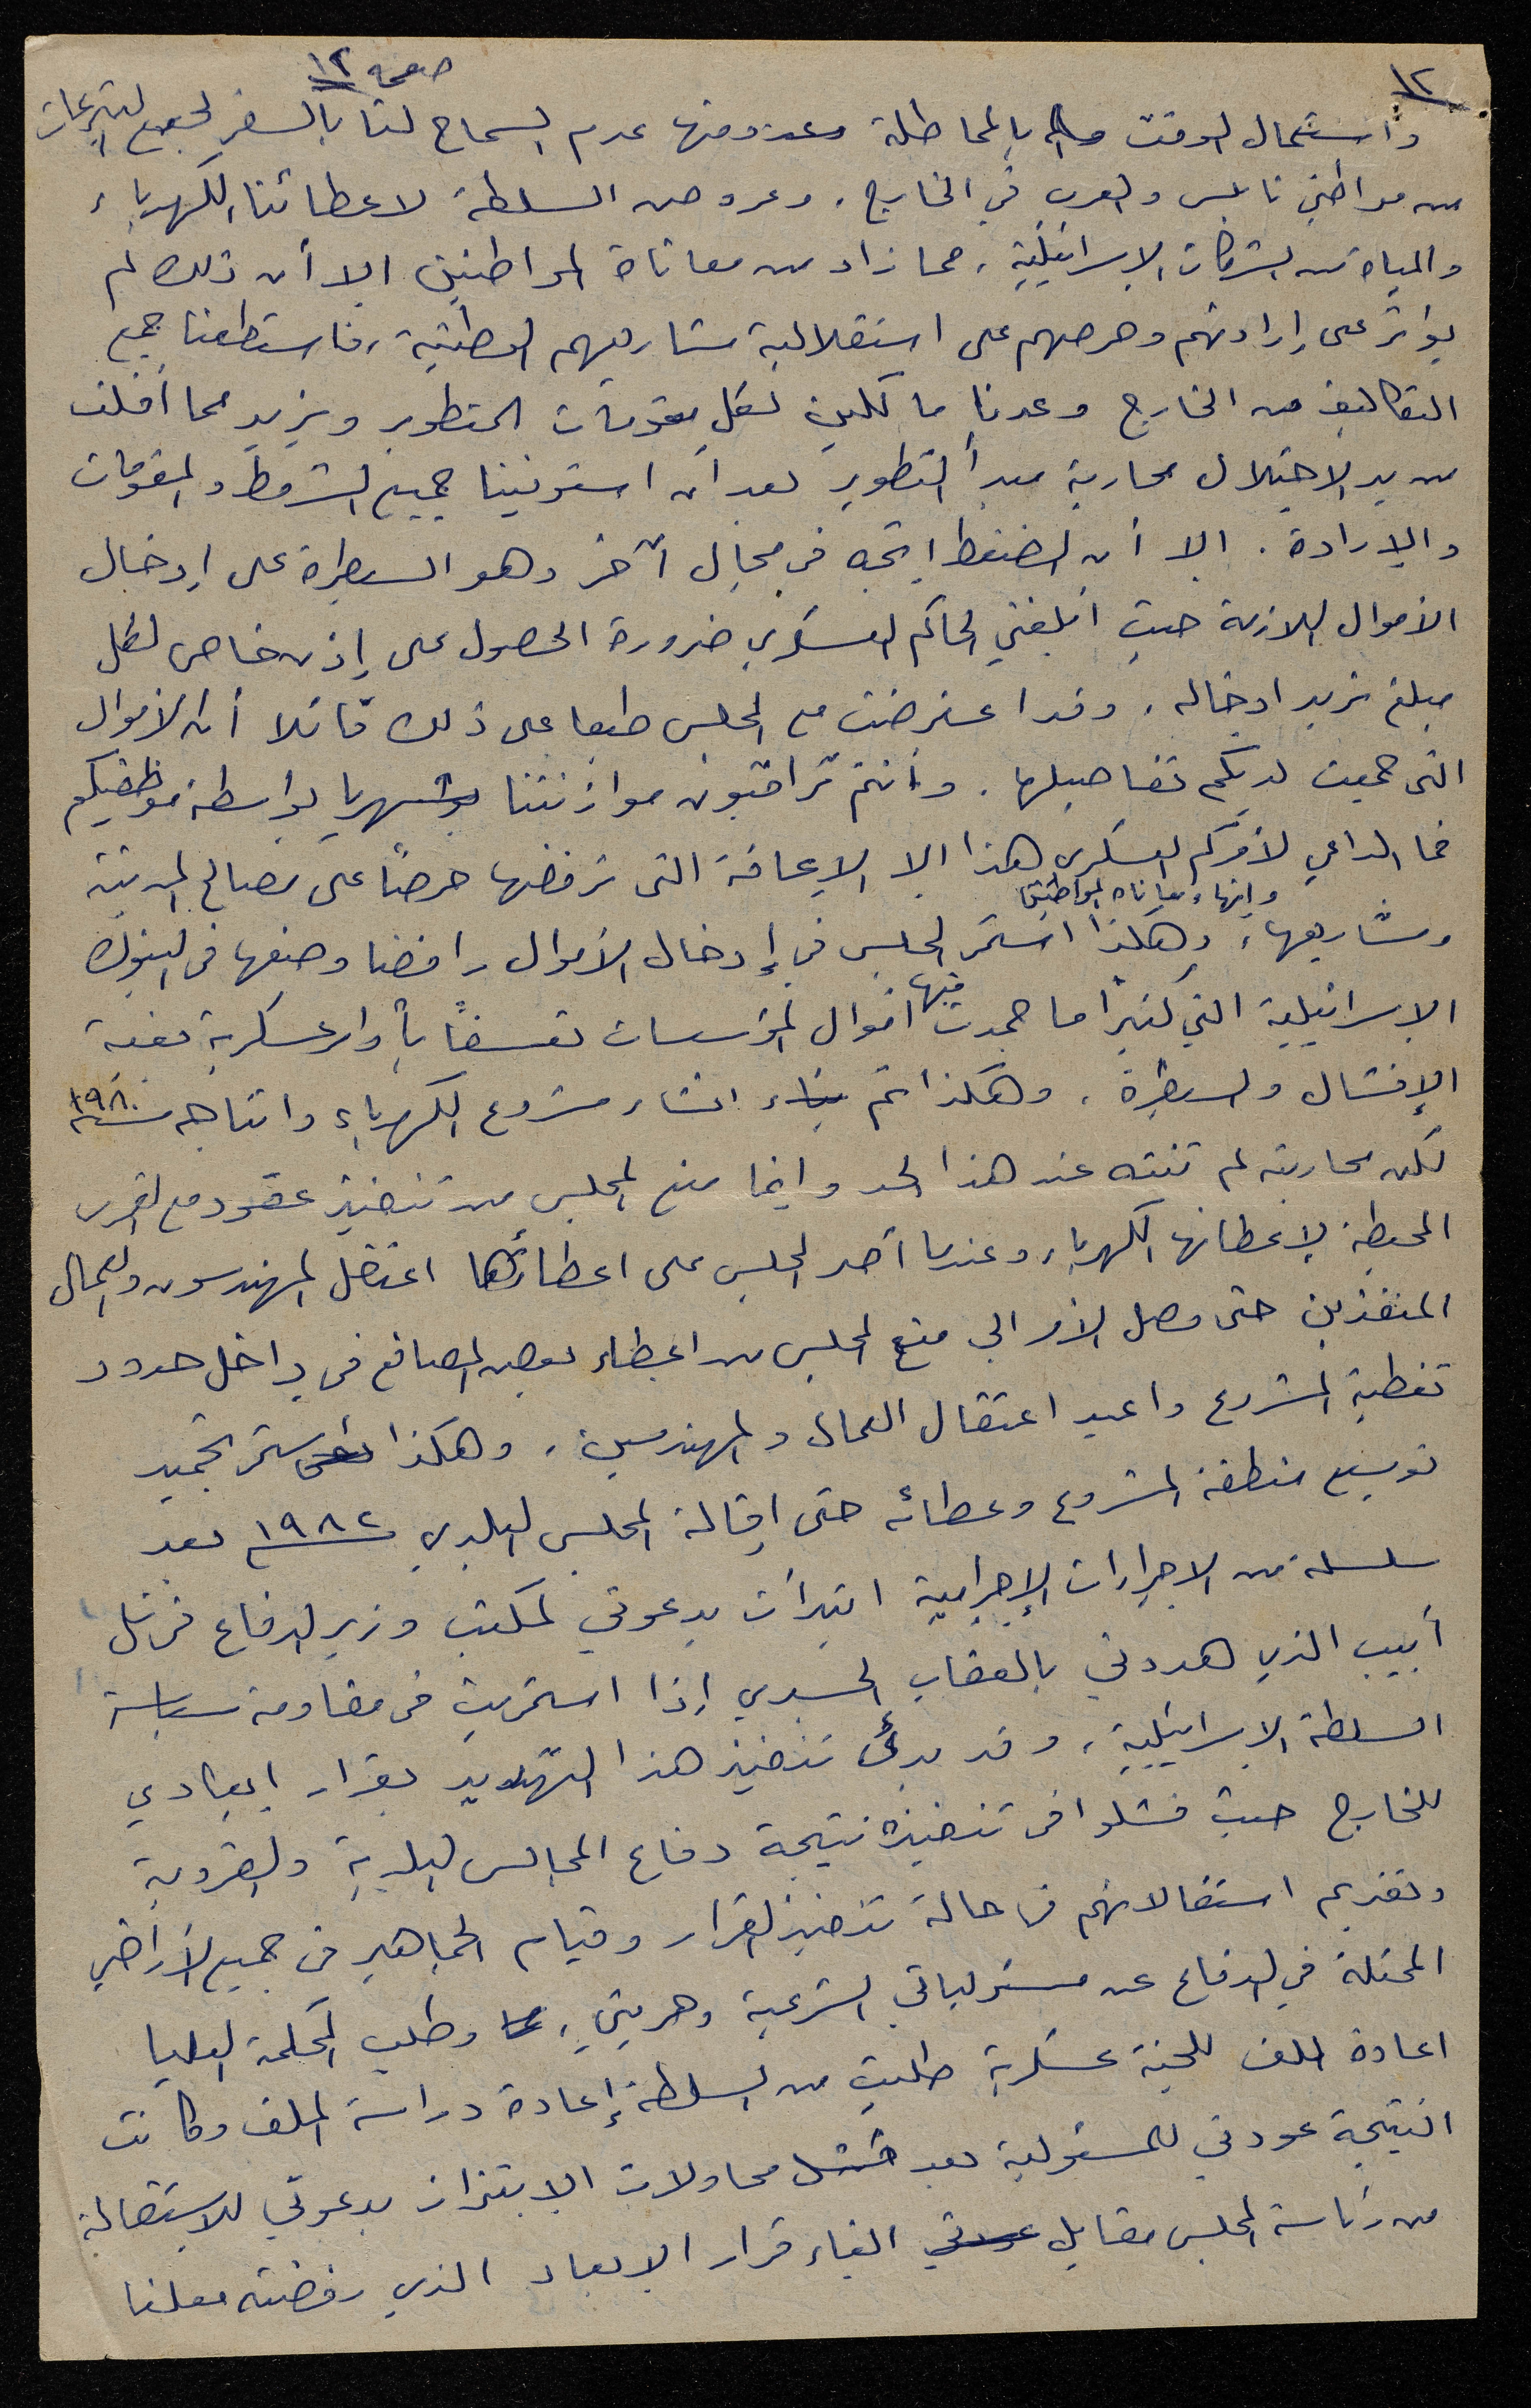 ١٢
صفحة ١٢
واستعمال الوقت بالمماطلة ومنها عدم السماح لنا بالسفر لجمع التبرعات
من مواطني نابلس والعرب في الخارج، وعروض السلطة لاعطائنا الكهرباء
والمياه من الشركات الاسرائيلية، مما زاد من معاناة المواطنين الا أن ذلك لم
يؤثر على إرادتهم وحرصهم على استقلالية مشاريعهم الوطنية، فاستطعنا جمع
التكاليف من الخارج وعدنا مالكين لكل مقومات التطوير ونزيد مما أفلت
من يد الاحتلال محاربة مبدأ التطوير بعد ان استوفينا جميع الشروط والمقومات
والارادة. الا أن الضغط اتجه في مجال آخر وهو السيطرة على إدخال
الأموال اللازمة حيث أبلغني الحاكم العسكري ضرورة الحصول على إذن خاص لكل
مبلغ نريد ادخاله، وقد اعترضت مع المجلس طبعا على ذلك قائلا أن الأموال
التي جمعت لديكم تفاصيلها. وأنتم تراقبون موازنتنا شهريا بواسطة موظفيكم
فما الداعي لأمركم العسكري هذا الا الاعاقة التي نرفضها حرصاً على مصالح المدينة
وانهاء معاناة المواطنين
ومشاريعها، وهكذا استمر المجلس في إدخال الأموال رافضا وضعها في البنوك
الاسرائيلية التي كثيراً ما جمدت فيها اموال المؤسسات تعسفاً بأوامر عسكرية بغية
الإفشال والسيطرة. وهكذا تم انشاء مشروع الكهرباء وانتاجه سنة ١٩٨٠
لكن محاربته لم تنته عند هذا الحد وانما منع المجلس من تنفيذ عقود مع القرى
المحيطة لإعطائها الكهرباء وعندما أصر المجلس على اعطائها اعتقل المهندسون والعمال
المنفذين حتى وصل الأمر الى منع المجلس من اعطاء بعض المصانع في داخل حدود
تغطية المشروع واعيد اعتقال العمال والمهندسين، وهكذا استمر تجميد
توسيع منطقة المشروع وعطائه حتى اقالة المجلس البلدي ١٩٨٢ بعد
سلسلة من الاجراءات الإجرامية ابتدأت بدعوتي لمكتب وزير الدفاع في تل
أبيب الذي هددني بالعقاب الجسدي إذا استمريت في مقاومة سياسة
السلطة الاسرائيلية، وقد بدئ تنفيذ هذا التهديد بقرار ابعادي
للخارج حيث فشلوا في تنفيذه نتيجة دفاع المجالس البلدية والقروية
وتقديم استقالاتهم في حالة تنفيذ القرار وقيام الجماهير في جميع الأراضي
المحتلة في الدفاع عن مسئولياتي الشرعية وحريتي، وطلب المحكمة العليا
اعادة الملف للجنة عسكرية طلبت من السلطة إعادة دراسة الملف وكانت
النتيجة عودتي للمسئولية بعد فشل محاولات الابتزاز بدعوتي للاستقالة
من رئاسة المجلس مقابل الغاء قرار الابعاد الذي رفضته معلنا